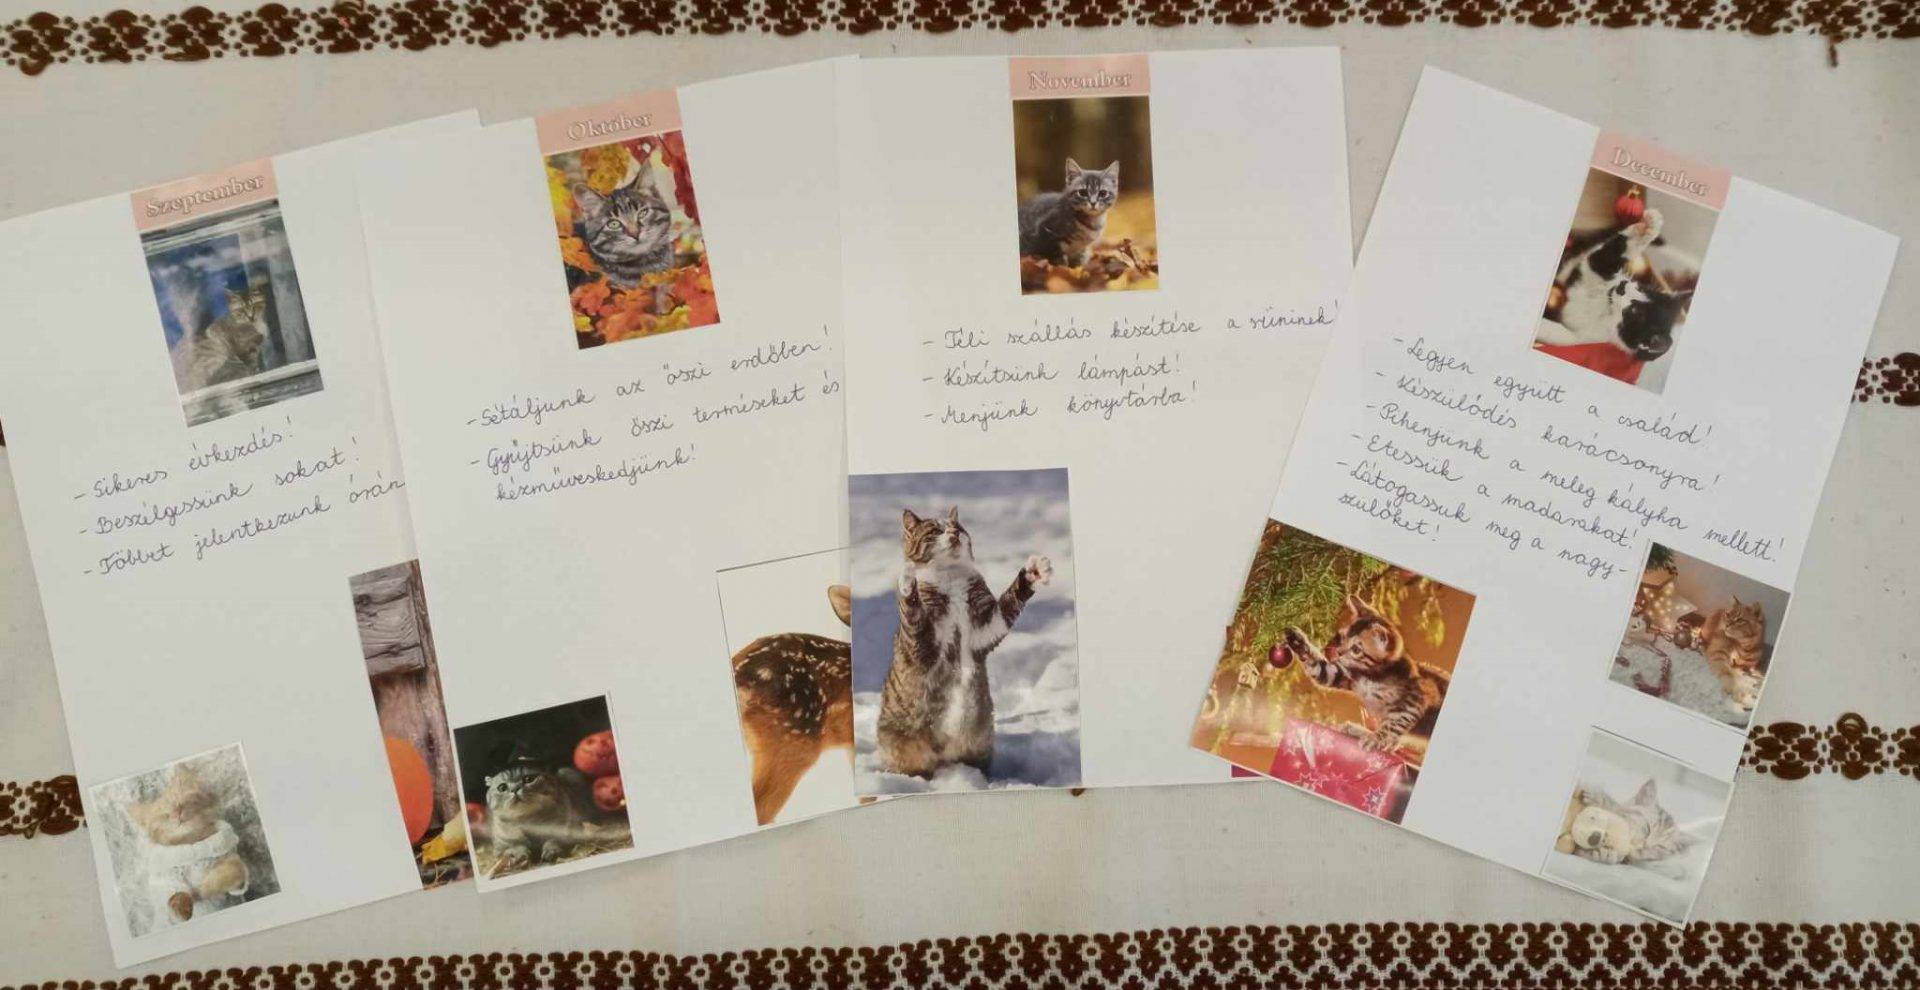 Szeptember
- Sikeres évkezdés!
- Beszélgessünk sokat!
- Többet jelentkezünk órán
Október
- Sétáljunk az őszi erdőben!
- Gyűjtsünk őszi terméseket és
kézműveskedjünk!
November
- Téli szállás készítése a süninek!
- Készítsünk lámpást!
- Menjünk könyvtárba!
December
- Legyen együtt a család!
- Készülődés karácsonyra!
- Pihenjünk a meleg kályha mellett!
- Etessük a madarakat!
- Látogassuk meg a nagy-
szülőket!